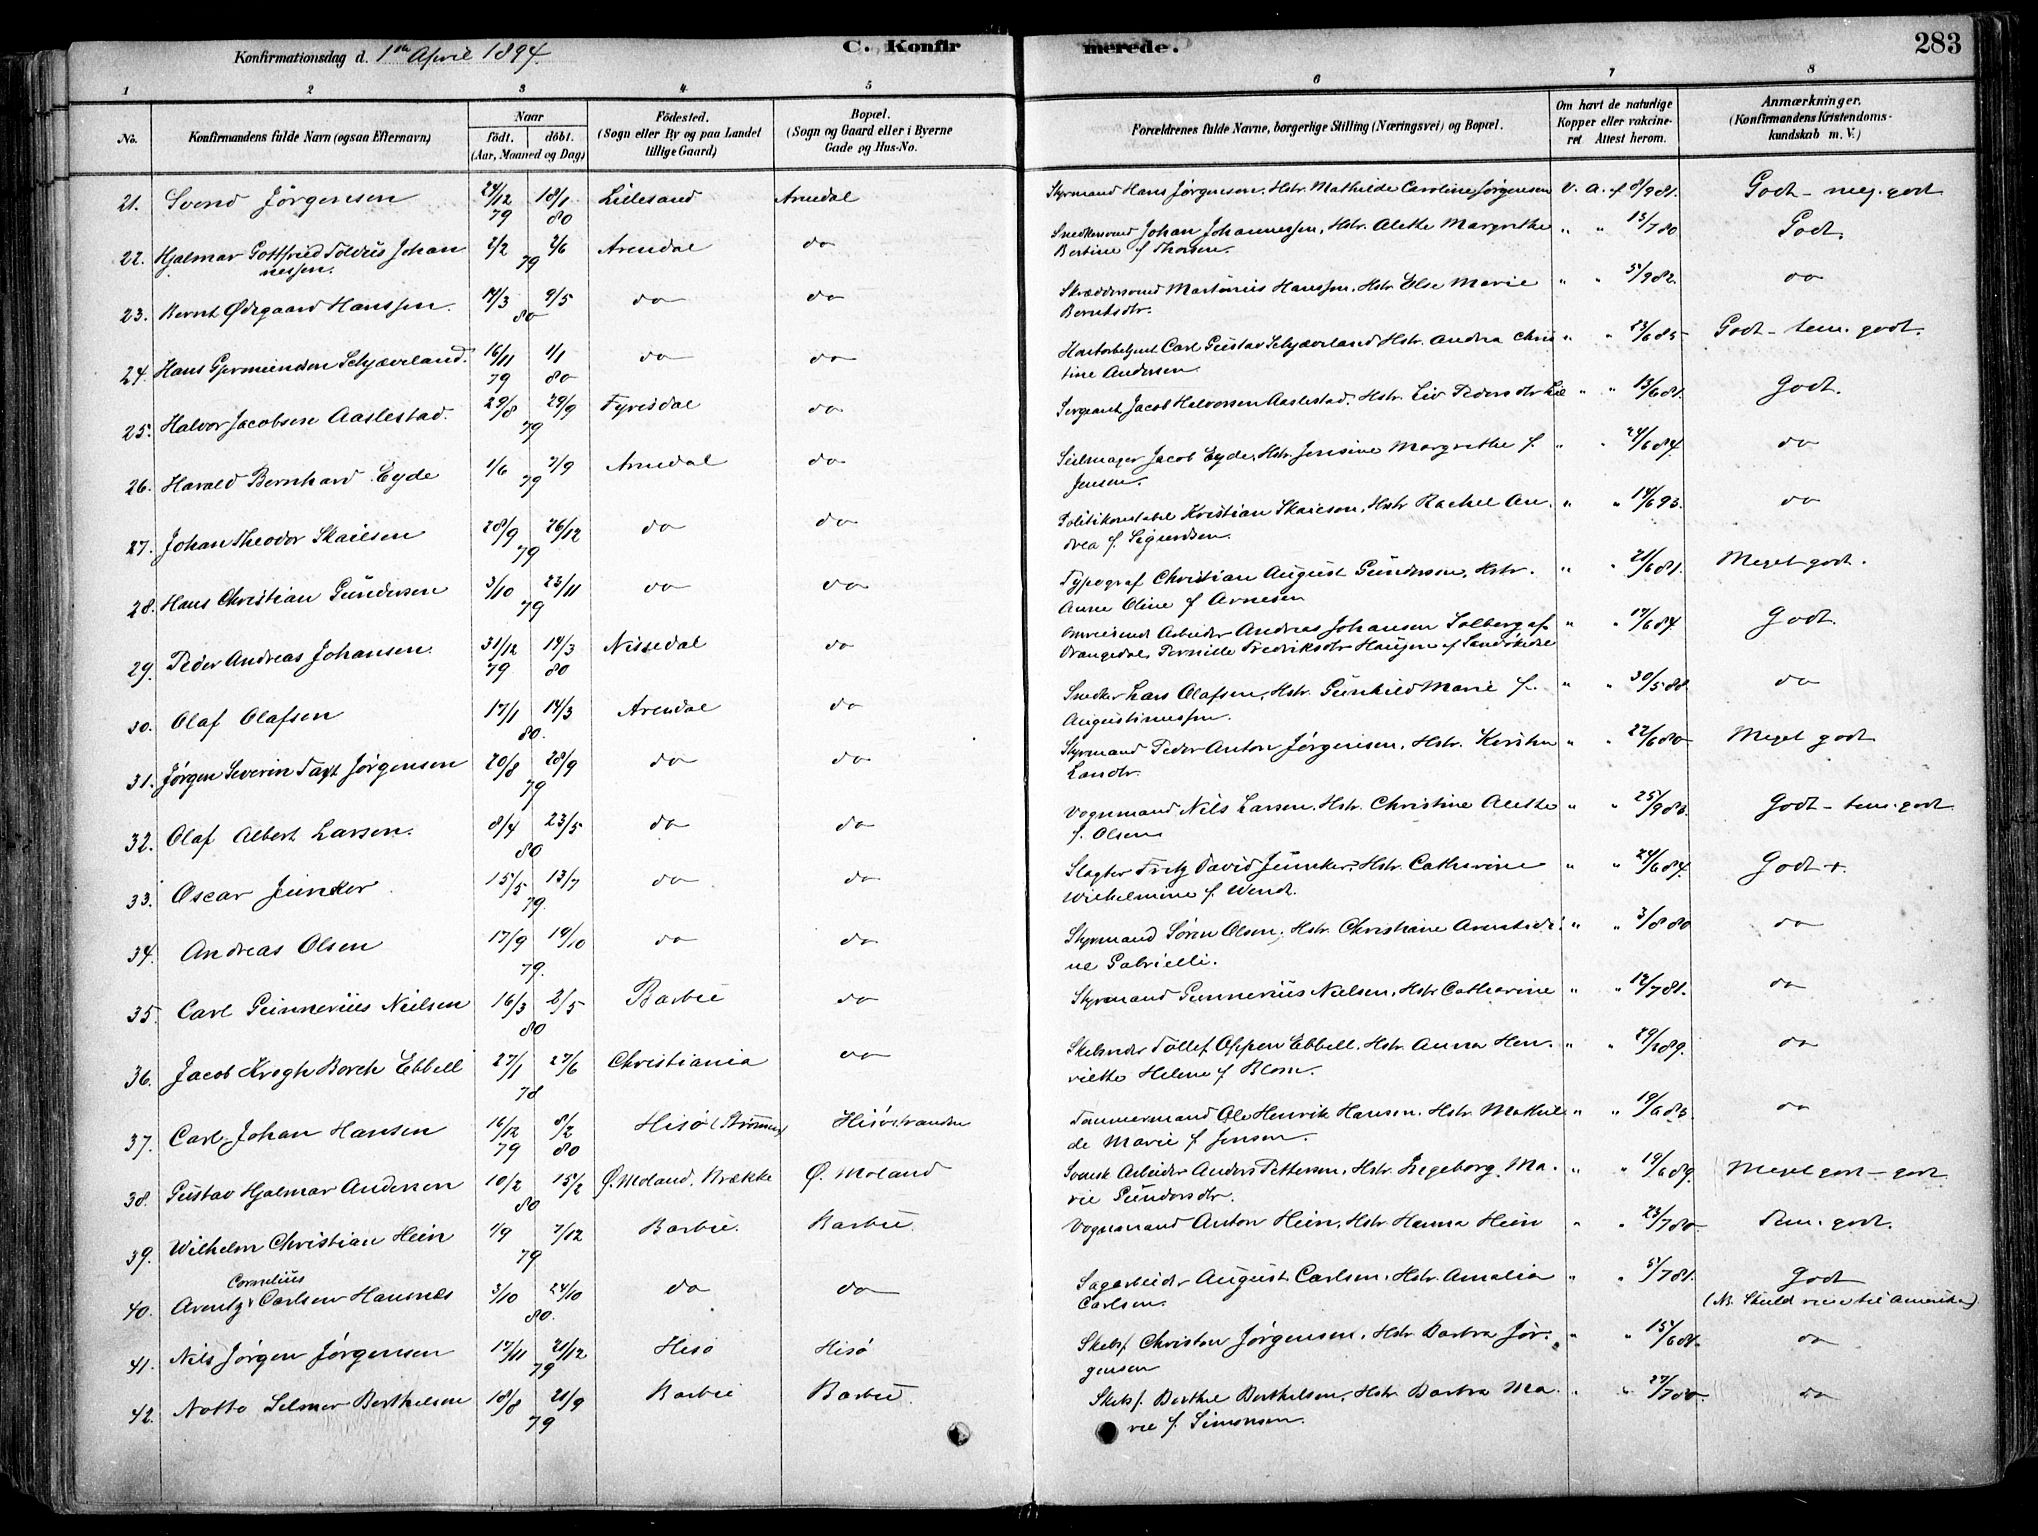 Konfirmationsdag d. 1ste April 1894.
C. Konfirmerede.
283
1 2 3 4 5 6 7 8
No.
Konfirmandens fulde Navn (ogsaa Efternavn)
Naar
født. døbt.
(Aar, Maaned og Dag)
Fødested.
(Sogn eller By og paa Landet
tillige Gaard)
Bopæl.
(Sogn og Gaard eller i Byerne
Gade og Hus-No.
Forældrenes fulde Navne, borgerlige Stilling (Næringsvei) og Bopæl.
Om havt de naturlige
Kopper eller vakcine-
ret Attest herom.
Anmærkninger.
(Konfirmandens Kristendoms-
kundskab m. V.)
21. Svend Jørgensen 24/12 79 18/1 80 Lillesand Arendal Styrmand Hans Jørgensen, Hstr. Mathilde Caroline Jørgensen V. A. f 8/9 81. Godt - meg. godt
22. Hjalmar Gottfried Toldius Johan 2/2 2/6 79 Arendal do Johan Johannessen, Hstr. Alethe Margrethe " " 13/7 80 Godt.
nessen. Bertine f. Thorsen.
23. Bernt Ødegaard Hanssen. 17/3 9/5 80 do do Skræddersvend Martinius Hanssen, Hstr. Else Marie " " 5/9 82. do
Berntsdtr.
24. Hans Schjæveland. 16/11 79 1/1 80 do do Carl Gustav Schjæveland Hstr. Andrea Chris " " 23/6 85 Godt - tem. godt.
tine Andersen
25. Halvor Jacobsen Aaslestad. 29/8 29/9 79 Fyrisdal do Sergeant Jacob Halvorsen Aaslestad. Hstr. Liv Pedersdtr " " 13/6 81. Godt.
26. Harald Bernhard Eyde 1/6 7/9 79 Arendal do Seilmager Jacob Eyde, Hstr. Jensine Margrethe f. " " 24/6 84. do
Jensen.
27. Johan Theodor Skailsen 28/9 26/12 79 do do Politikonstabel Kristian Skaieson, Hstr Rachel An. " " 14/6 93. do
drea f. Sigurdsen.
28. Hans Christian Gundersen 3/10 23/11 79 do do Typograf Christian August Gundersen, Hstr. " " 21/6 81. Meget godt.
Anne Oline f Arnesen
29. Peder Andreas Johansen. 31/12 79 14/3 80 Nissedal do Omreisende Arbeider Andreas Johansen Solberg af " " 17/6 84. Godt.
Drangedal, Pernille Fredriksdtr Haugen af Sandøkedal
30. Olaf Olafsen 17/1 14/3 80. Arendal do Snedker Lars Olafsen, Hstr. Gunhild Marie f. " " 30/5 88 do
Augustinussen.
31. Jørgen Severin Taxt Jørgensen 20/8 28/9 79 do do Styrmand Peder Anton Jørgensen, Hstr. Kirsten " " 22/6 80 Meget godt
Larsdtr.
32. Olaf Albert Larsen. 8/4 23/5 80 do do Vognmand Nils Larsen, Hstr. Christine Alethe " " 25/9 83. Godt - tem. godt
f. Olsen
33. Oscar Junker 15/5 13/7 79. do do Slagter Fritz David Junker, Hstr. Catharine " " 24/6 84. Godt +.
Wilhelmine f. Wendt.
34. Andreas Olsen 17/9 19/10 79. do do Styrmand Søren Olsen, Hstr. Christiane Arentsdi " " 3/8 80 do
ne Gabrielli.
35. Carl Gunnerius Nielsen 16/3 2/5 80 Barbu do Styrmand Gunnerius Nielsen, Hstr Catharine " " 12/7 81. do
36. Jacob Krogh Borch Ebbell 27/1 27/6 78 Christiania do Tollef Oppen Ebbell, Hstr. Anna Hen. " " do
riette Helene f Blom.
37. Carl Johan Hansen 16/12 79 8/2 80 Hisø (Strømmen) Hisøstranden Tømmermand Ole Henrik Hansen. Hstr. Mathil " " 19/6 83. do
de Marie f Jensen.
38. Gustav Hjalmar Andersen 10/2 15/2 80 Ø. Moland, Brække Ø. Moland Svensk Arbeider Anders Pettersen, Hstr. Ingeborg Ma. " " 19/6 89. Meget godt - godt
rie Gundersdtr.
39. Wilhelm Christian Hein 1/9 7/12 79 Barbu. Barbu. Vognmand Anton Hein, Hstr. Hanna Hein " " 23/7 80 Tem. godt.
Cornelius
40. Arentz Carlsen Hausnes 3/10 24/10 80. do do Sagarbeider August Carlsen, Hstr. Amalia " " 5/7 81. Godt
Carlsen. (NB. Skuld reise til Amerika)
41. Nils Jørgen Jørgensen 17/11 21/12 79 Hisø Hisø Skibsf. Christen Jørgensen, Hstr Barbra Jør. " " 15/6 81. do
gensen
42. Notto Selmer Berthelsen 18/8 21/9 79 Barbu Barbu. Skibsf. Berthel Berthelsen, Hstr Barbra Ma " " 27/7 80. do
rie f. Simonsen.